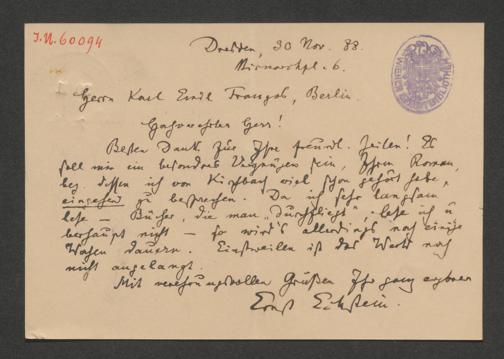 I.N. 60094
Dresden, 30 Nov. 88.
Bismarckpl. 6.
Herrn Karl Emil Franzos, Berlin.
Hochverehrter Herr!
Besten Dank für Ihre freundl. Zeilen! Es
soll mir ein besonderes Vergnügen sein, Ihren Roman,
bez. dessen ich von Kirchbach viel schon gehört habe,
eingehend zu besprechen. Da ich sehr langsam
lese – Bücher, die man „durchfliegt“, lese ich ü
berhaupt nicht – so wird's allerdings noch einige
Wochen dauern. Einstweilen ist das Werk noch
nicht angelangt.
Mit verehrungsvollen Grüßen Ihr ganz ergebener
Ernst Eckstein.